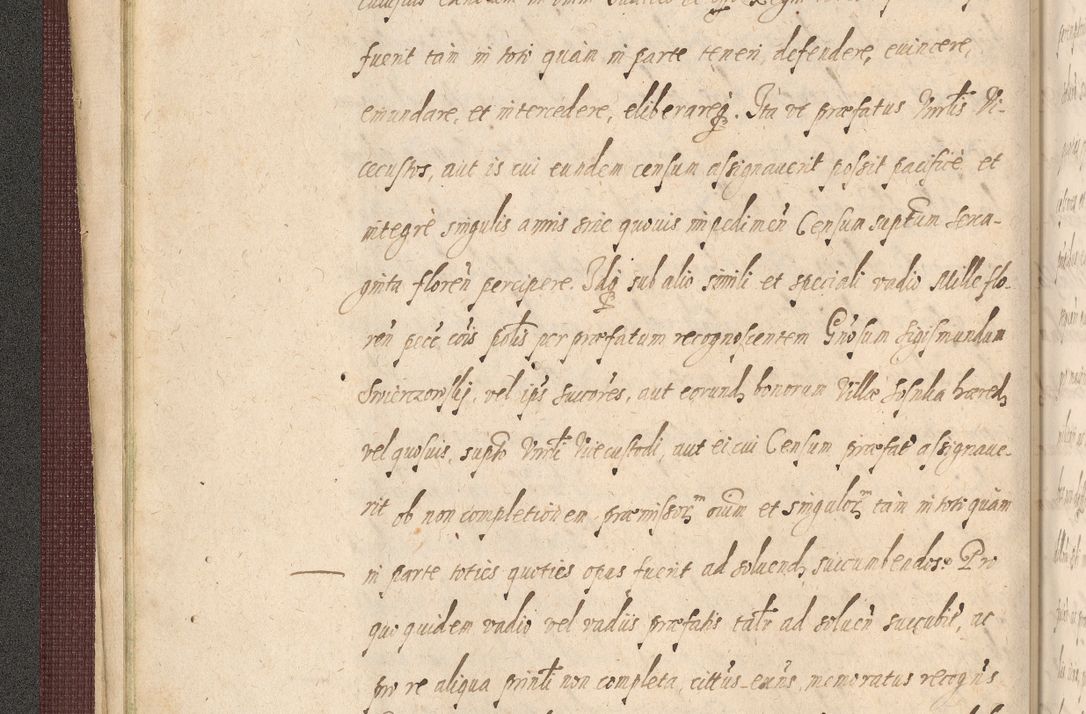 fuerit tàm in toto quàm in parte teneri, defendere, euincere,
emundare, et intercedere, eliberareq́;. Ita vt præfatus Vnrłis Vi-
cecustos, aut is cui eundem censum assignauerit possit pacificè et
integrè singulis annis sine quouis impedimen̄ Censum supt̄um sexa-
ginta floreń percipere. Idq́; sub alio simili et speciali vadio Mille flo-
reń pecć cōis polłis per præfatum recognoscentem Gn̄osum Sigismundum
Swierczowskij, vel ip̄s succōres, aut eorund, bonorum Villæ Sosnka hæred,
vel quosuis, supt̄o Vnrłi Vicecustodi, aut ei cui Censum præfat̄ assignaue-
rit ob non completionem præmissor, oīum et singulor, tàm in toto quàm
in parte toties quoties opus fuerit ad soluend, succumbendos. Pro
quo quidem vadio vel vadiis præfatis talr ad soluen̄ succubit, ac
pro re aliqua prin̄łi non completa, citt̄us eun̄s, memoratus recogn̄s